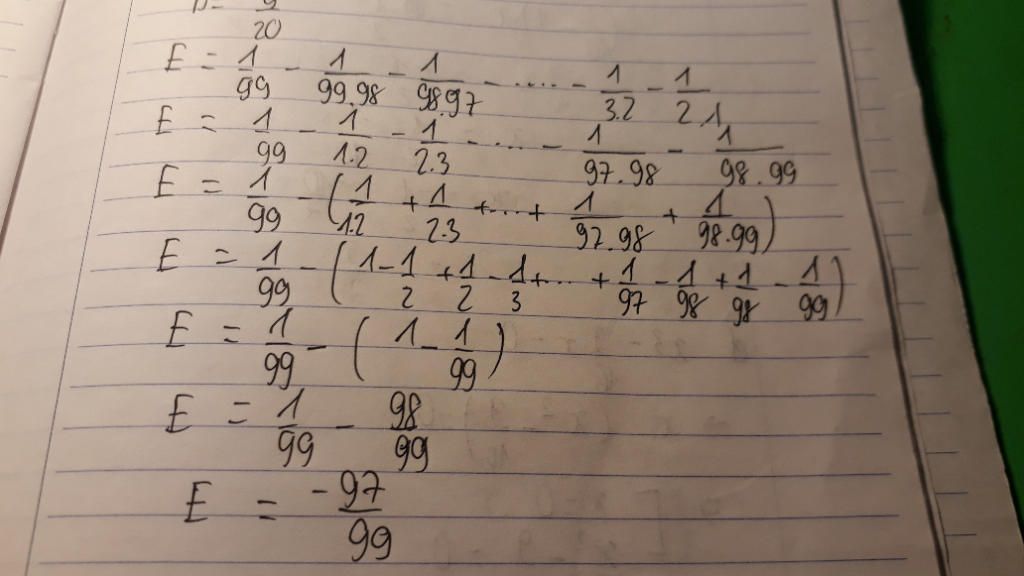 20
E = 1/99 - 1/99.98 - 1/98.97 - ..... - 1/3.2 - 1/2.1
E = 1/99 - 1/1.2 - 1/2.3 - .... - 1/97.98 - 1/98.99
E = 1/99 - (1/1.2 + 1/2.3 + ... + 1/97.98 + 1/98.99)
E = 1/99 - (1 - 1/2 + 1/2 - 1/3 + ... + 1/97 - 1/98 + 1/98 - 1/99)
E = 1/99 - (1 - 1/99)
E = 1/99 - 98/99
E = -97/99